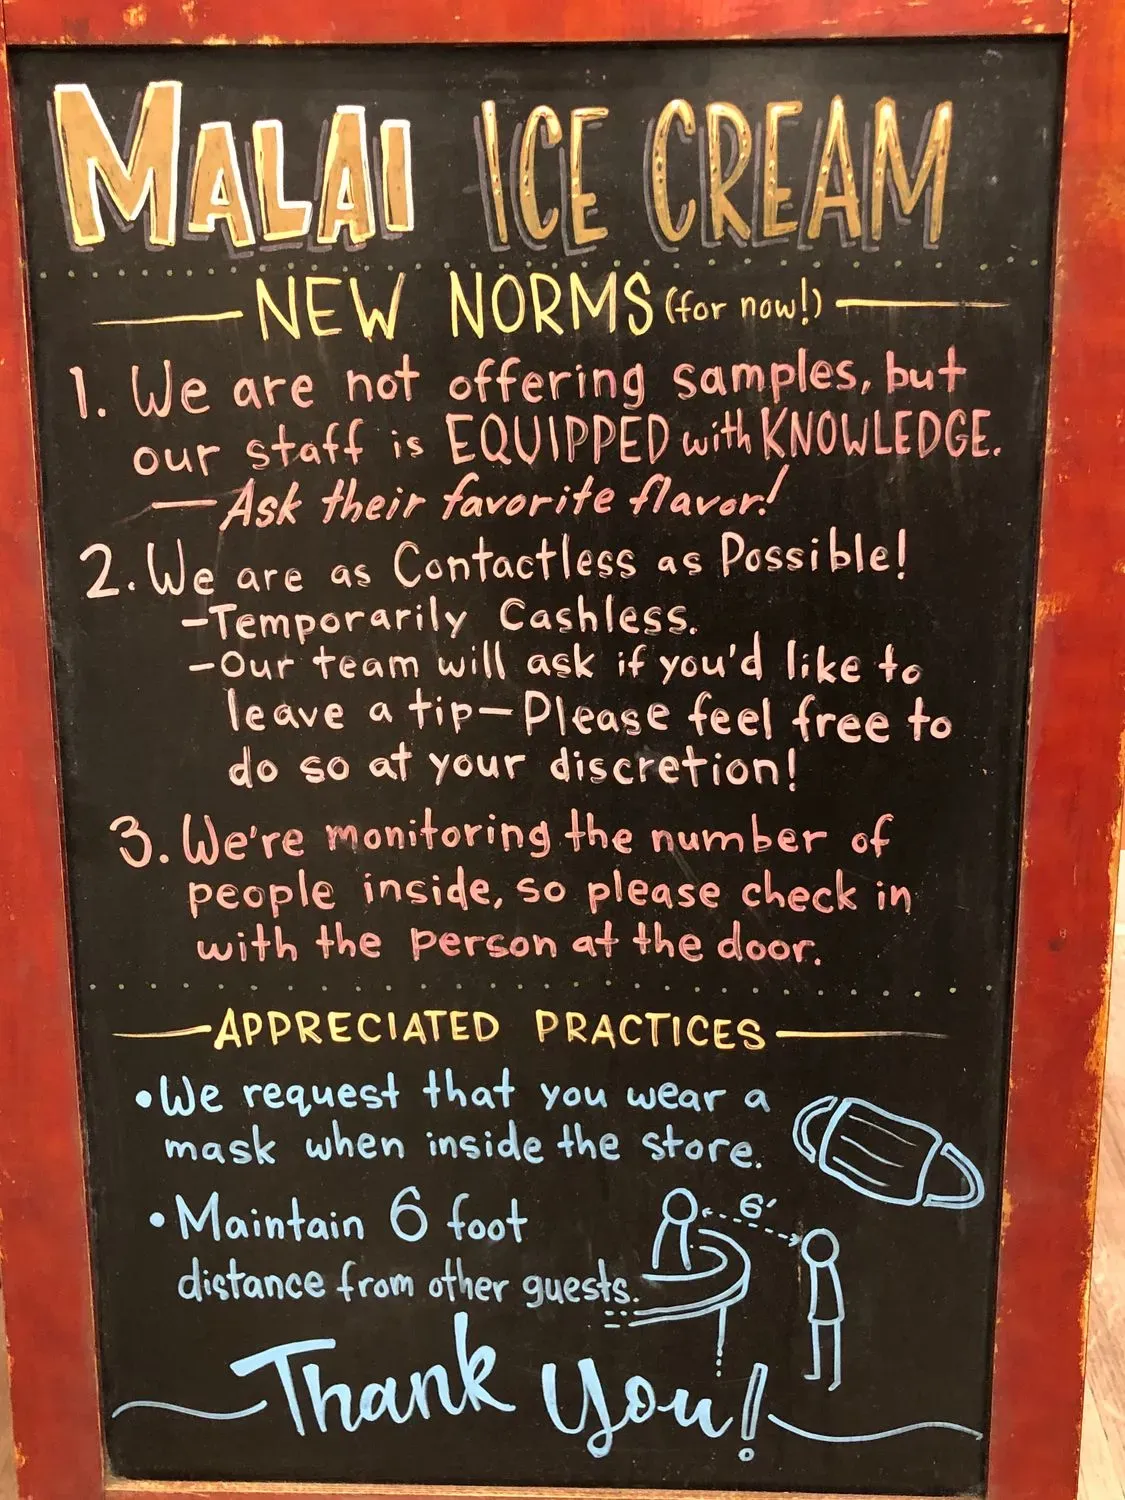 MALAI ICE CREAM
NEW NORMS (for now!)
1. We are not offering samples, but
our staff is EQUIPPED with KNOWLEDGE.
— Ask their favorite flavor!
2. We are as Contactless as Possible!
-Temporarily Cashless.
-Our team will ask if you'd like to
leave a tip—Please feel free to
do so at your discretion!
3. We're monitoring the number of
people inside, so please check in
with the person at the door.
APPRECIATED PRACTICES
•We request that you wear a
mask when inside the store.
•Maintain 6 foot
distance from other guests.
6'
Thank You!